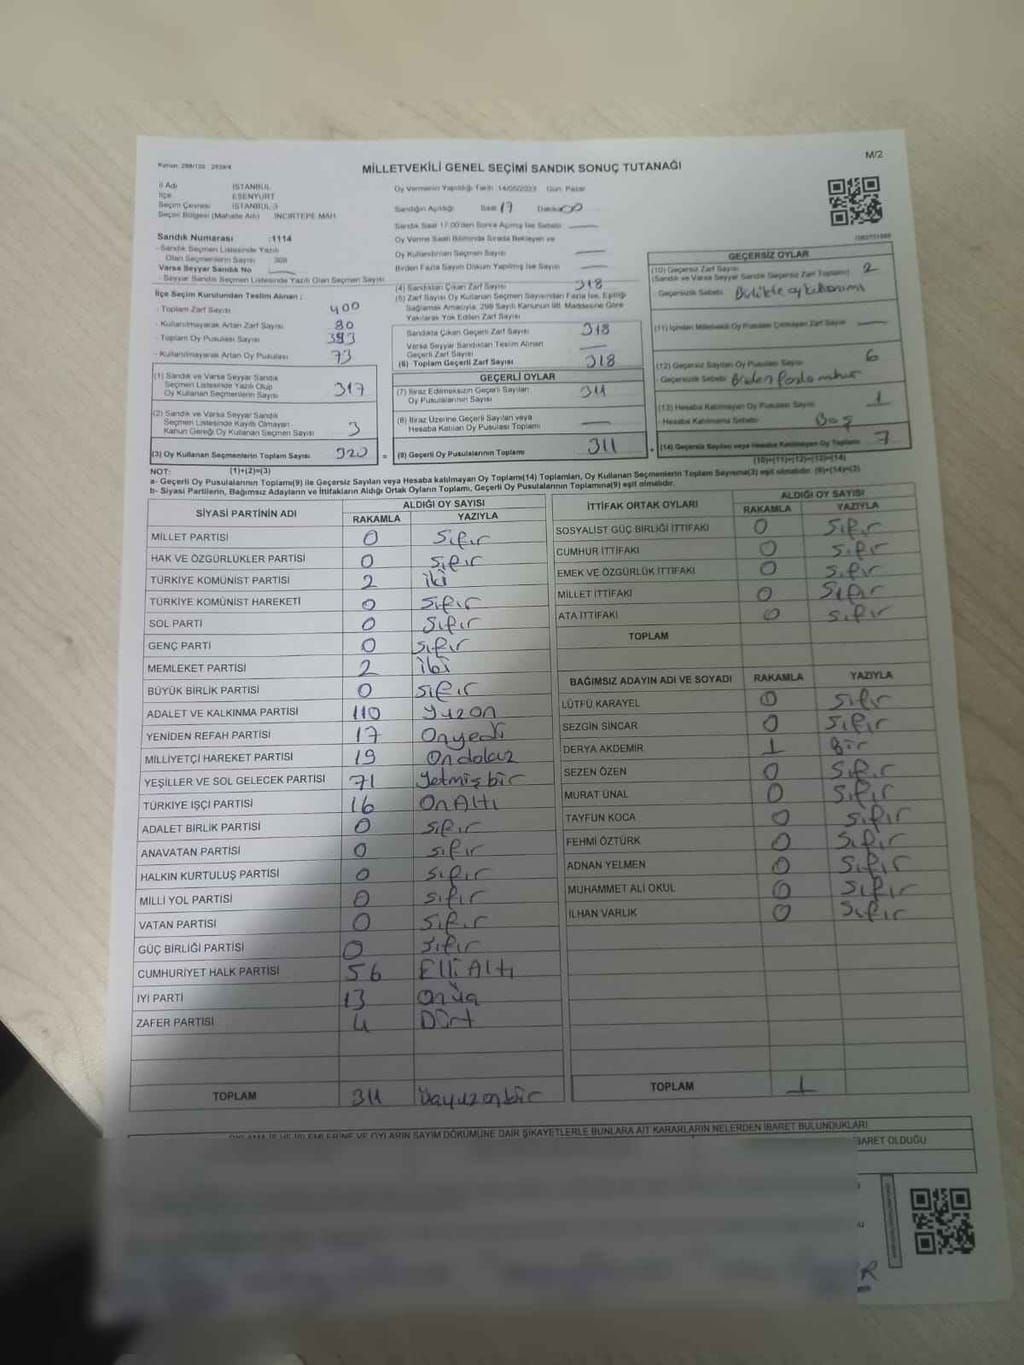 M/2
MİLLETVEKİLİ GENEL SEÇİMİ SANDIK SONUÇ TUTANAĞI
İl Adı İSTANBUL
İlçe ESENYURT
Seçim Çevresi İSTANBUL-3
Seçim Bölgesi (Mahalle Adı) İNCİRTEPE MAH.
Oy Vermenin Yapıldığı Tarih: 14/05/2023 Gün: Pazar
Sandığın Açıldığı Saat 17 Dakika 00
Sandık Saat 17:00'den Sonra Açılmış İse Sebebi
Sandık Numarası :1114
- Sandık Seçmen Listesinde Yazılı
Olan Seçmenlerin Sayısı
Varsa Seyyar Sandık No
- Seyyar Sandık Seçmen Listesinde Yazılı Olan Seçmen Sayısı
Oy Verme Saati Bitiminde Sırada Bekleyen ve
Oy Kullandırılan Seçmen Sayısı
Birden Fazla Sayım Döküm Yapılmış İse Sayısı
İlçe Seçim Kurulundan Teslim Alınan :
- Toplam Zarf Sayısı 400
- Kullanılmayarak Artan Zarf Sayısı 80
- Toplam Oy Pusulası Sayısı 393
- Kullanılmayarak Artan Oy Pusulası 73
(1) Sandık ve Varsa Seyyar Sandık
Seçmen Listesinde Yazılı Olup
Oy Kullanan Seçmenlerin Sayısı 317
(2) Sandık ve Varsa Seyyar Sandık
Seçmen Listesinde Kayıtlı Olmayan
Kanun Gereği Oy Kullanan Seçmen Sayısı 3
(3) Oy Kullanan Seçmenlerin Toplam Sayısı 320
(1)+(2)=(3)
(4) Sandıktan Çıkan Zarf Sayısı 318
(5) Zarf Sayısı Oy Kullanan Seçmen Sayısından Fazla İse, Eşitliği
Sağlamak Amacıyla, 298 Sayılı Kanunun 98. Maddesine Göre
Yakılarak Yok Edilen Zarf Sayısı
Sandıkta Çıkan Geçerli Zarf Sayısı 318
Varsa Seyyar Sandıktan Teslim Alınan
Geçerli Zarf Sayısı
(6) Toplam Geçerli Zarf Sayısı 318
GEÇERLİ OYLAR
(7) İtiraz Edilmeksizin Geçerli Sayılan
Oy Pusulalarının Sayısı 311
(8) İtiraz Üzerine Geçerli Sayılan veya
Hesaba Katılan Oy Pusulası Toplamı
(9) Geçerli Oy Pusulalarının Toplamı 311
GEÇERSİZ OYLAR
(10) Geçersiz Zarf Sayısı 2
(Sandık ve Varsa Seyyar Sandık Geçersiz Zarf Toplamı)
- Geçersizlik Sebebi
(11) İçinden Milletvekili Oy Pusulası Çıkmayan Zarf Sayısı
(12) Geçersiz Sayılan Oy Pusulası Sayısı 6
- Geçersizlik Sebebi Birden fazla mühür
(13) Hesaba Katılmayan Oy Pusulası Sayısı 1
- Hesaba Katılmama Sebebi Boş
(14) Geçersiz Sayılan veya Hesaba Katılmayan Oy Toplamı 7
(10)+(11)+(12)+(13)=(14)
NOT:
a- Geçerli Oy Pusulalarının Toplamı(9) ile Geçersiz Sayılan veya Hesaba katılmayan Oy Toplamı(14) Toplamları, Oy Kullanan Seçmenlerin Toplam Sayısına(3) eşit olmalıdır. (9)+(14)=(3)
b- Siyasi Partilerin, Bağımsız Adayların ve İttifakların Aldığı Ortak Oyların Toplamı, Geçerli Oy Pusulalarının Toplamına(9) eşit olmalıdır.
SİYASİ PARTİNİN ADI ALDIĞI OY SAYISI
RAKAMLA YAZIYLA
MİLLET PARTİSİ 0 Sıfır
HAK VE ÖZGÜRLÜKLER PARTİSİ 0 Sıfır
TÜRKİYE KOMÜNİST PARTİSİ 2 iki
TÜRKİYE KOMÜNİST HAREKETİ 0 Sıfır
SOL PARTİ 0 Sıfır
GENÇ PARTİ 0 Sıfır
MEMLEKET PARTİSİ 2 iki
BÜYÜK BİRLİK PARTİSİ 0 Sıfır
ADALET VE KALKINMA PARTİSİ 110 Yüzon
YENİDEN REFAH PARTİSİ 17 Onyedi
MİLLİYETÇİ HAREKET PARTİSİ 19 Ondokuz
YEŞİLLER VE SOL GELECEK PARTİSİ 71 Yetmişbir
TÜRKİYE İŞÇİ PARTİSİ 16 OnAltı
ADALET BİRLİK PARTİSİ 0 Sıfır
ANAVATAN PARTİSİ 0 Sıfır
HALKIN KURTULUŞ PARTİSİ 0 Sıfır
MİLLİ YOL PARTİSİ 0 Sıfır
VATAN PARTİSİ 0 Sıfır
GÜÇ BİRLİĞİ PARTİSİ 0 Sıfır
CUMHURİYET HALK PARTİSİ 56 Elli Altı
İYİ PARTİ 13 Onüç
ZAFER PARTİSİ 4 Dört
TOPLAM 311
İTTİFAK ORTAK OYLARI ALDIĞI OY SAYISI
RAKAMLA YAZIYLA
SOSYALİST GÜÇ BİRLİĞİ İTTİFAKI 0 Sıfır
CUMHUR İTTİFAKI 0 Sıfır
EMEK VE ÖZGÜRLÜK İTTİFAKI 0 Sıfır
MİLLET İTTİFAKI 0 Sıfır
ATA İTTİFAKI 0 Sıfır
TOPLAM
BAĞIMSIZ ADAYIN ADI VE SOYADI RAKAMLA YAZIYLA
LÜTFÜ KARAYEL 0 Sıfır
SEZGİN SİNCAR 0 Sıfır
DERYA AKDEMİR 1 Bir
SEZEN ÖZEN 0 Sıfır
MURAT ÜNAL 0 Sıfır
TAYFUN KOCA 0 Sıfır
FEHMİ ÖZTÜRK 0 Sıfır
ADNAN YELMEN 0 Sıfır
MUHAMMET ALİ OKUL 0 Sıfır
İLHAN VARLIK 0 Sıfır
TOPLAM 1
VE OYLARIN SAYIM DÖKÜMÜNE DAİR ŞİKAYETLERLE BUNLARA AİT KARARLARIN NELERDEN İBARET BULUNDUKLARI
İBARET OLDUĞU